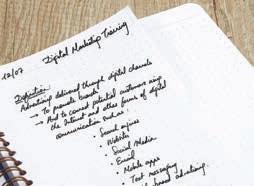 12/07 Digital Marketing Training
Definition:
Advertising delivered through digital channels
→ To promote brands
→ And to connect potential customers using
the Internet and other forms of digital
communication such as:
• Search engines
• Websites
• Social Media
• Email
• Mobile apps
• Text messaging
advertising.